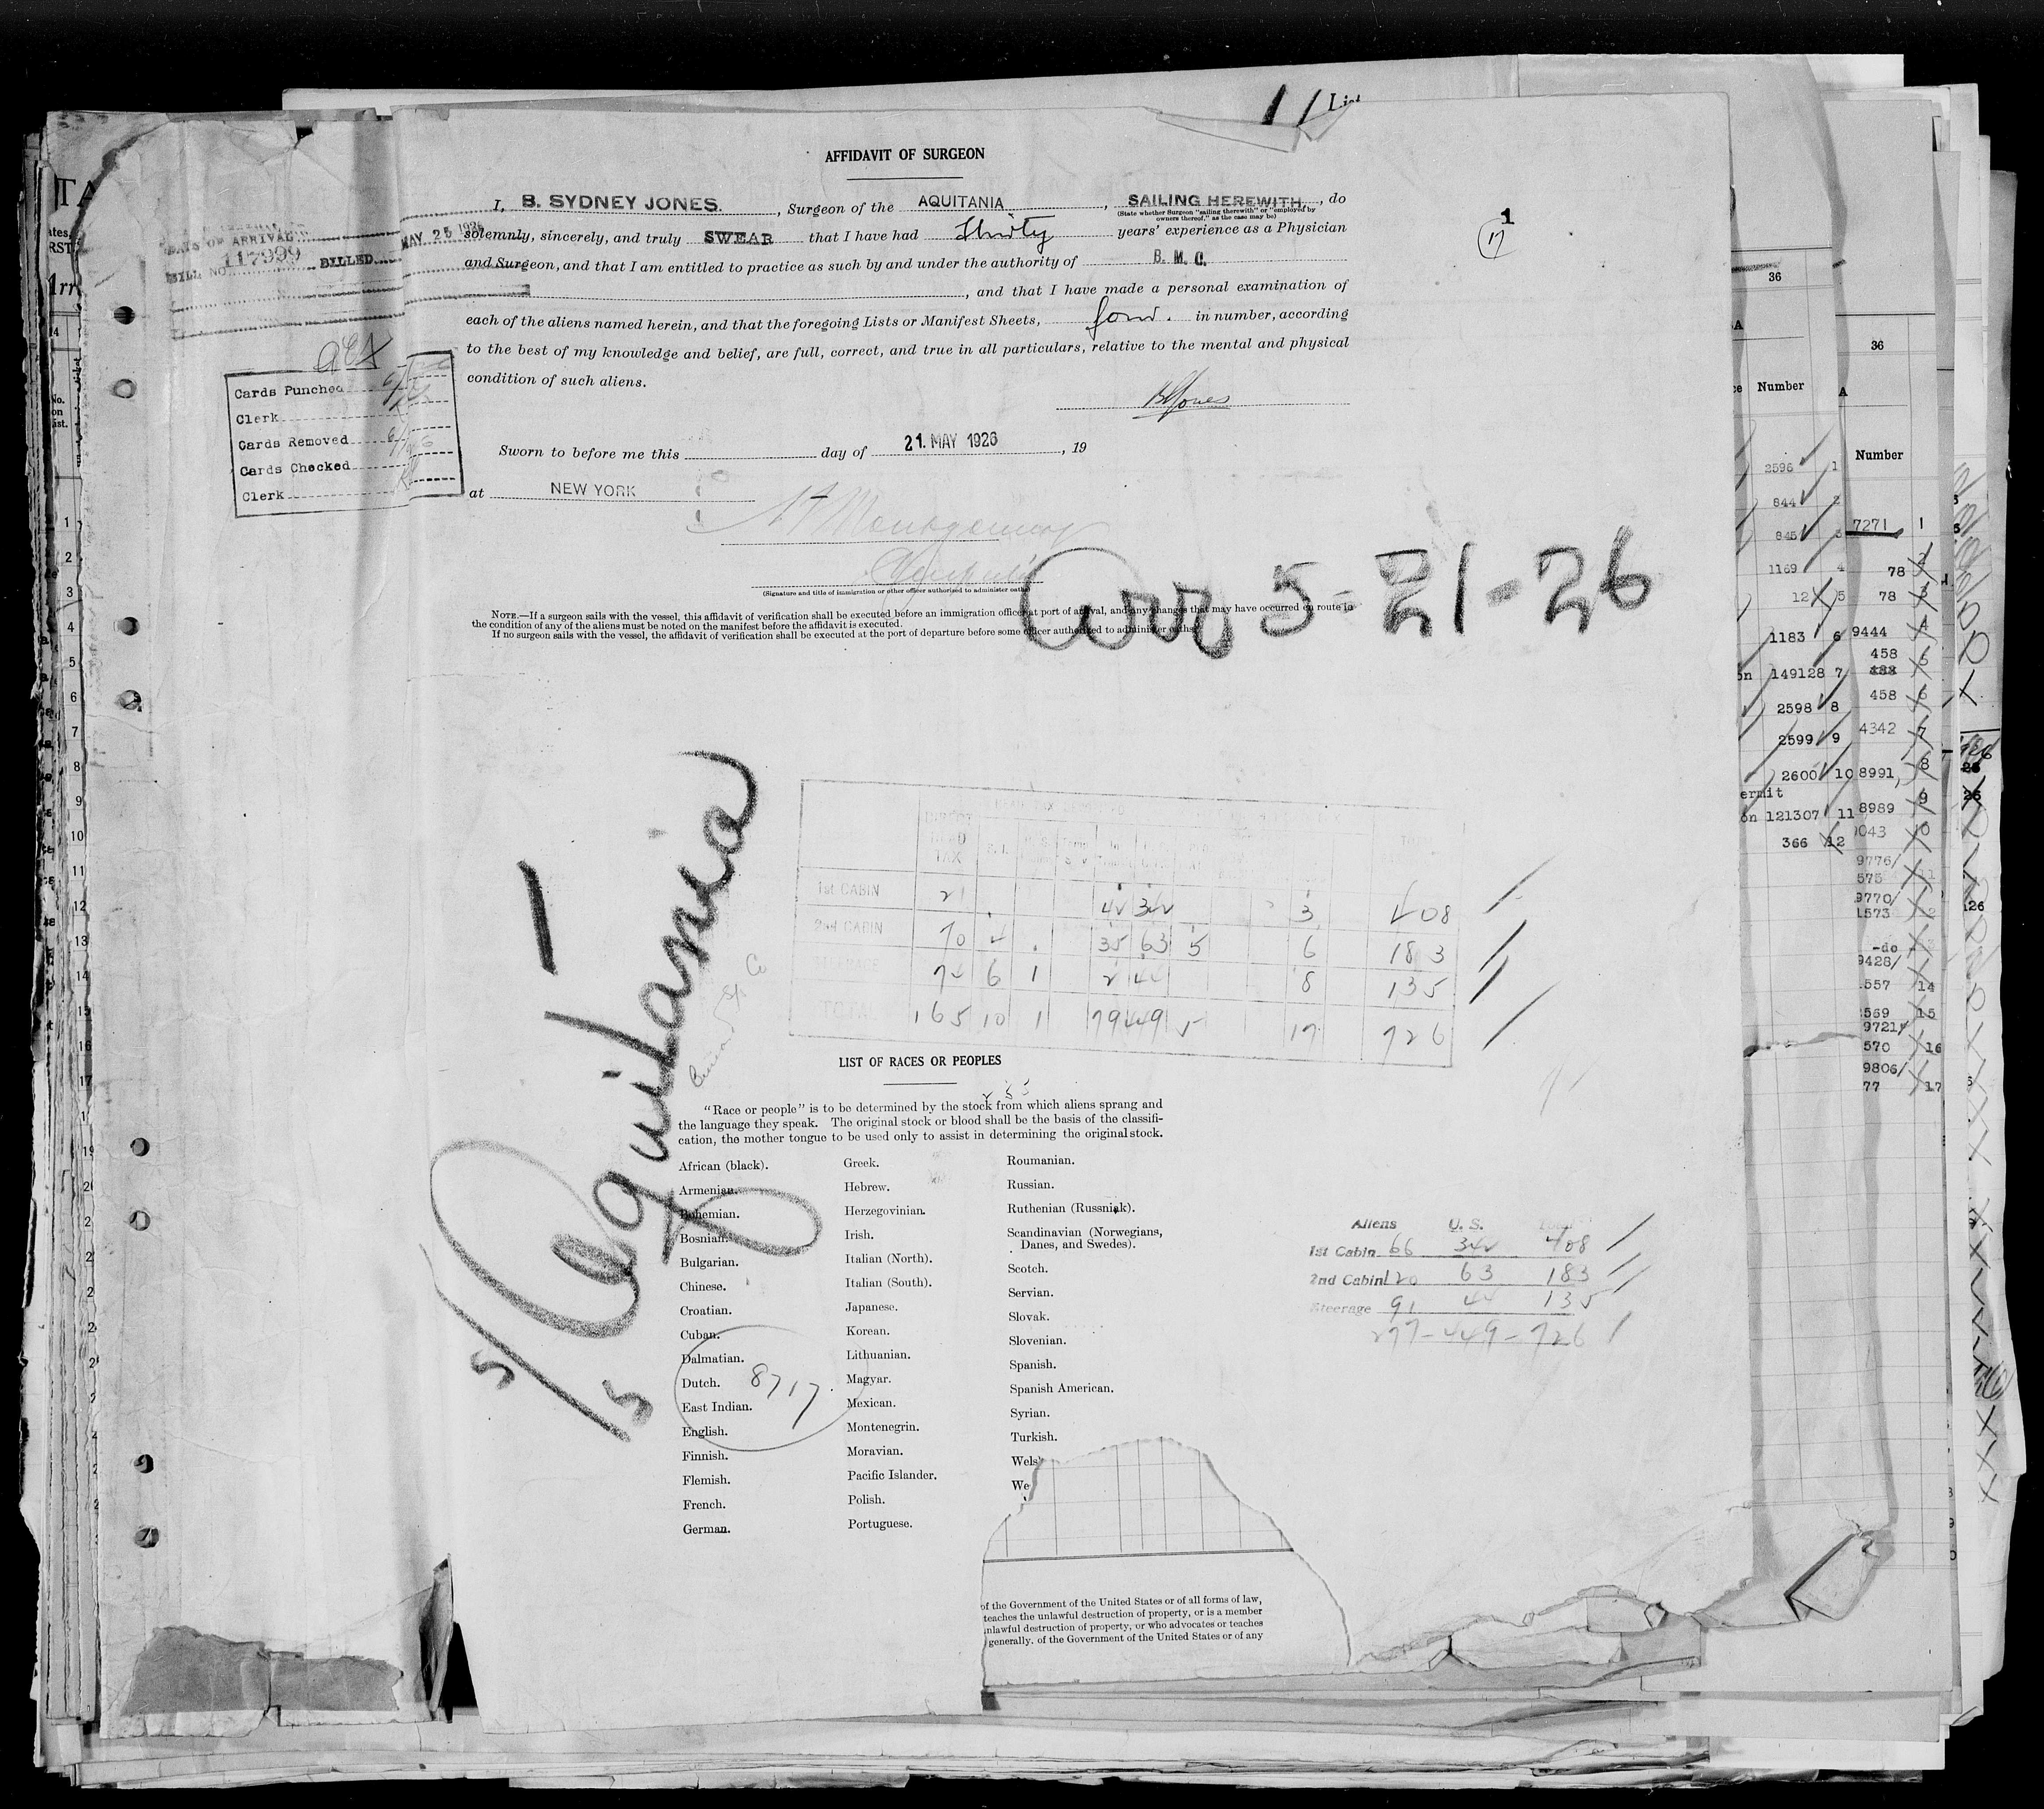 11 List
AFFIDAVIT OF SURGEON
I, B. SYDNEY JONES. , Surgeon of the AQUITANIA , SAILING HEREWITH , do
(State whether Surgeon "sailing therewith" or "employed by
owners thereof," as the case may be)
solemnly, sincerely, and truly SWEAR that I have had Thirty years' experience as a Physician
and Surgeon, and that I am entitled to practice as such by and under the authority of B. M. C.
, and that I have made a personal examination of
each of the aliens named herein, and that the foregoing Lists or Manifest Sheets, four. in number, according
to the best of my knowledge and belief, are full, correct, and true in all particulars, relative to the mental and physical
condition of such aliens.
BSJones
Sworn to before me this day of 21. MAY 1926 , 19
at NEW YORK
Montgomery
(Signature and title of immigration or other officer authorized to administer oaths)
NOTE.—If a surgeon sails with the vessel, this affidavit of verification shall be executed before an immigration officer at port of arrival, and any changes that may have occurred en route in
the condition of any of the aliens must be noted on the manifest before the affidavit is executed.
If no surgeon sails with the vessel, the affidavit of verification shall be executed at the port of departure before some officer authorized to administer oaths.
1
17
Arr 5-21-26
MAY 25 1926
DAYS OF ARRIVAL
BILL NO. 117999 BILLED
Cards Punched
Clerk
Cards Removed
Cards Checked
Clerk
Aquitania
5/5
Cunard SS Co
HEAD TAX
1st CABIN 21 4 342 3 408
2nd CABIN 70 4 35 63 5 6 183
STEERAGE 74 6 1 2 44 8 135
TOTAL 165 10 1 79 449 5 17 726
LIST OF RACES OR PEOPLES
"Race or people" is to be determined by the stock from which aliens sprang and
the language they speak. The original stock or blood shall be the basis of the classifi-
cation, the mother tongue to be used only to assist in determining the original stock.
African (black).
Armenian.
Bohemian.
Bosnian.
Bulgarian.
Chinese.
Croatian.
Cuban.
Dalmatian.
Dutch.
East Indian.
English.
Finnish.
Flemish.
French.
German.
8717.
Greek.
Hebrew.
Herzegovinian.
Irish.
Italian (North).
Italian (South).
Japanese.
Korean.
Lithuanian.
Magyar.
Mexican.
Montenegrin.
Moravian.
Pacific Islander.
Polish.
Portuguese.
Roumanian.
Russian.
Ruthenian (Russniak).
Scandinavian (Norwegians,
Danes, and Swedes).
Scotch.
Servian.
Slovak.
Slovenian.
Spanish.
Spanish American.
Syrian.
Turkish.
Wels
We
Aliens U. S. Total
1st Cabin 66 342 408
2nd Cabin 120 63 183
Steerage 91 44 135
277-449-726
of the Government of the United States or of all forms of law,
teaches the unlawful destruction of property, or is a member
nlawful destruction of property, or who advocates or teaches
generally. of the Government of the United States or of any
36
Number
2596 1
844 2
845 3
1169 4
12 5
1183 6
on 149128 7
2598 8
2599 9
2600 10
ermit
on 121307 11
366 12
36
A
Number
7271 1
78 2
78 3
9444 4
458
488 5
458 6
4342 7
8991 8
8989 9
9043 10
9776/
575 11
9770/
1573 12
-do
9428/
557 14
569 15
9721/
570 16
9806/
77 17